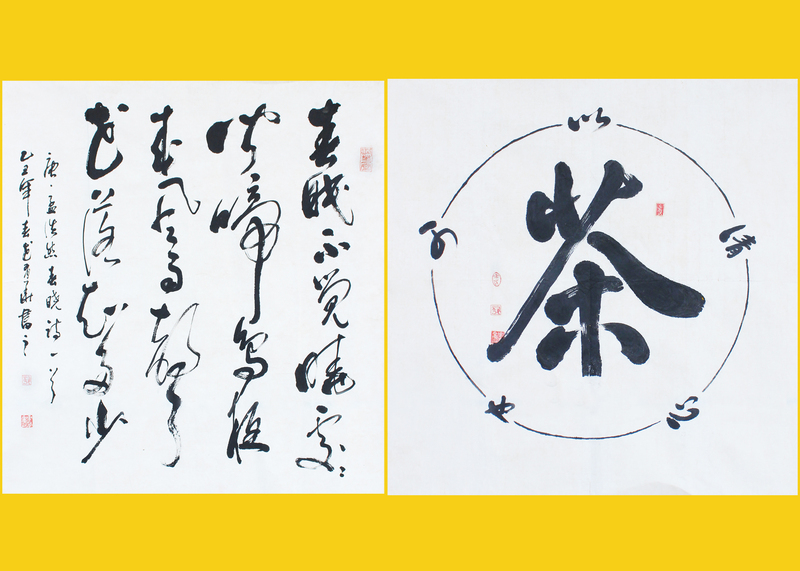 春眠不觉晓处々
闻啼鸟夜
来风雨聲
花落知多少
唐·孟浩然春晓诗一首
丑年春 书之
茶
可以清心也